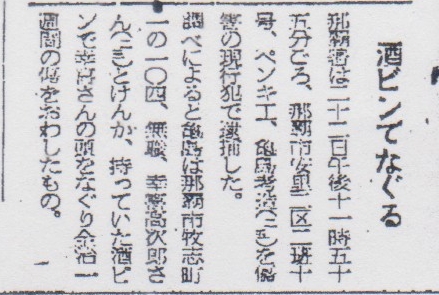 酒ビンでなぐる
那覇署は二十二日午後十一時五十
五分ごろ、那覇市安里二区二班十
号、ペンキ工、亀島孝造を傷
害の現行犯で逮捕した。
調べによると亀島は那覇市牧志町
一の一〇四、無職、幸喜高次郎さ
んとけんか、持っていた酒ビ
ンで幸喜さんの頭をなぐり全治一
週間の傷をおわしたもの。